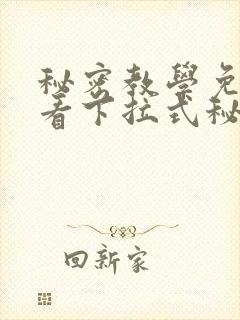 秘密教學免
看下拉式秘
回新家